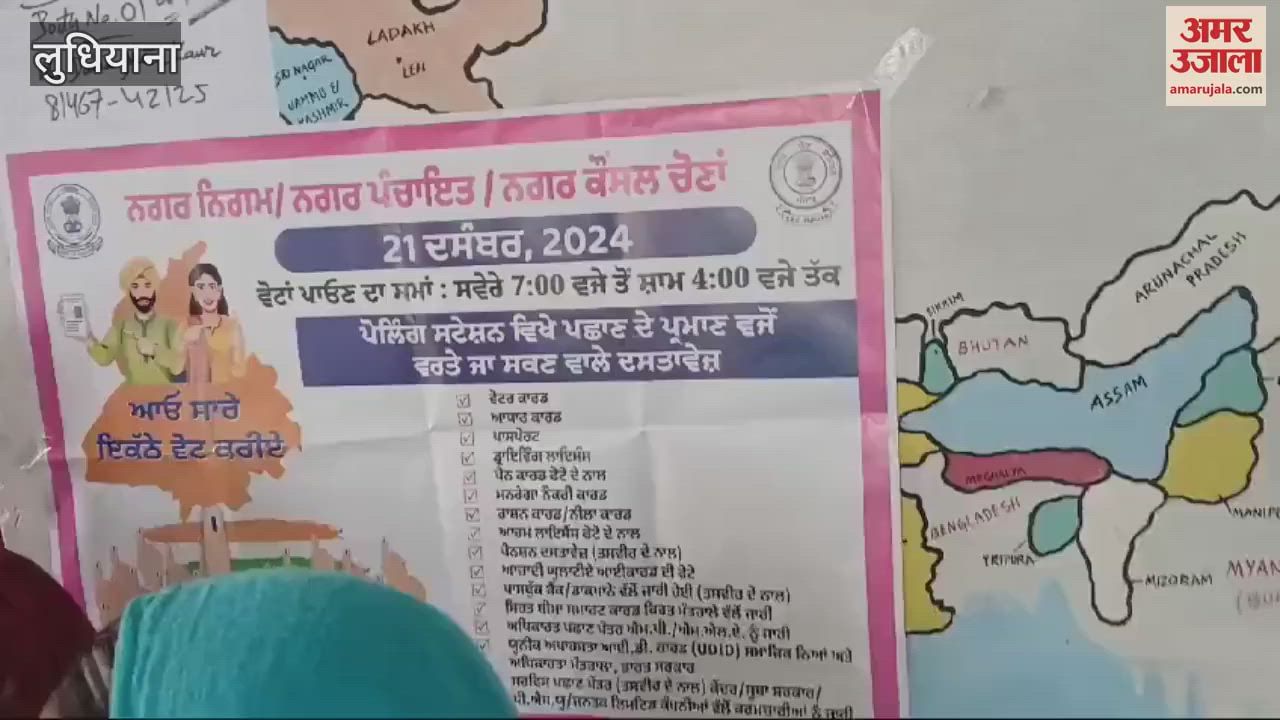 Body No. 01
लुधियाना
81467-42125
अमर
उजाला
amarujala.com
LADAKH
LEH
SRI NAGAR
JAMMU &
KASHMIR
ਨਗਰ ਨਿਗਮ/ ਨਗਰ ਪੰਚਾਇਤ / ਨਗਰ ਕੌਂਸਲ ਚੋਣਾਂ
21 ਦਸੰਬਰ, 2024
ਵੋਟਾਂ ਪਾਓਣ ਦਾ ਸਮਾਂ : ਸਵੇਰੇ 7:00 ਵਜੇ ਤੋਂ ਸ਼ਾਮ 4:00 ਵਜੇ ਤੱਕ
ਪੋਲਿੰਗ ਸਟੇਸ਼ਨ ਵਿਖੇ ਪਛਾਣ ਦੇ ਪ੍ਰਮਾਣ ਵਜੋਂ
ਵਰਤੇ ਜਾ ਸਕਣ ਵਾਲੇ ਦਸਤਾਵੇਜ਼
ਆਓ ਸਾਰੇ
ਇਕੱਠੇ ਵੋਟ ਕਰੀਏ
ਵੋਟਰ ਕਾਰਡ
ਆਧਾਰ ਕਾਰਡ
ਪਾਸਪੋਰਟ
ਡ੍ਰਾਇਵਿੰਗ ਲਾਇਸੰਸ
ਪੈਨ ਕਾਰਡ ਫੋਟੋ ਦੇ ਨਾਲ
ਮਨਰੇਗਾ ਨੌਕਰੀ ਕਾਰਡ
ਰਾਸ਼ਨ ਕਾਰਡ/ਨੀਲਾ ਕਾਰਡ
ਆਰਮ ਲਾਇਸੈਂਸ ਫੋਟੋ ਦੇ ਨਾਲ
ਪੈਨਸ਼ਨ ਦਸਤਾਵੇਜ਼ (ਤਸਵੀਰ ਦੇ ਨਾਲ)
ਆਜ਼ਾਦੀ ਘੁਲਾਟੀਏ ਆਈਕਾਰਡ ਦੀ ਫੋਟੋ
ਪਾਸਬੁੱਕ ਬੈਂਕ/ਡਾਕਖਾਨੇ ਵੱਲੋਂ ਜਾਰੀ ਹੋਈ (ਤਸਵੀਰ ਦੇ ਨਾਲ)
ਸਿਹਤ ਬੀਮਾ ਸਮਾਰਟ ਕਾਰਡ ਕਿਰਤ ਮੰਤਰਾਲੇ ਵੱਲੋਂ ਜਾਰੀ
ਅਧਿਕਾਰਤ ਪਛਾਣ ਪੱਤਰ ਐਮ.ਪੀ./ਐਮ.ਐਲ.ਏ. ਨੂੰ ਜਾਰੀ
ਯੂਨੀਕ ਅਪਾਹਜਤਾ ਆਈ.ਡੀ. ਕਾਰਡ (UDID) ਸਮਾਜਿਕ ਨਿਆਂ ਅਤੇ
ਅਧਿਕਾਰਤਾ ਮੰਤਰਾਲਾ, ਭਾਰਤ ਸਰਕਾਰ
ਸਰਵਿਸ ਪਛਾਣ ਪੱਤਰ (ਤਸਵੀਰ ਦੇ ਨਾਲ) ਕੇਂਦਰ/ਸੂਬਾ ਸਰਕਾਰ/
ਪੀ.ਐਸ.ਯੂ/ਜਨਤਕ ਲਿਮਟਿਡ ਕੰਪਨੀਆਂ ਵੱਲੋਂ ਕਰਮਚਾਰੀਆਂ ਨੂੰ ਜਾਰੀ
ARUNACHAL
PRADESH
SIKKIM
BHUTAN
ASSAM
MEGHALYA
BENGLADESH
TRIPURA
MIZORAM